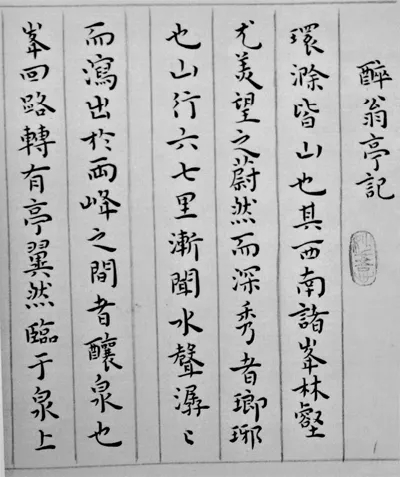 醉翁亭記
環滁皆山也其西南諸峯林壑
尤美望之蔚然而深秀者瑯琊
也山行六七里漸聞水聲潺〻
而瀉出於兩峰之間者釀泉也
峯回路轉有亭翼然臨于泉上